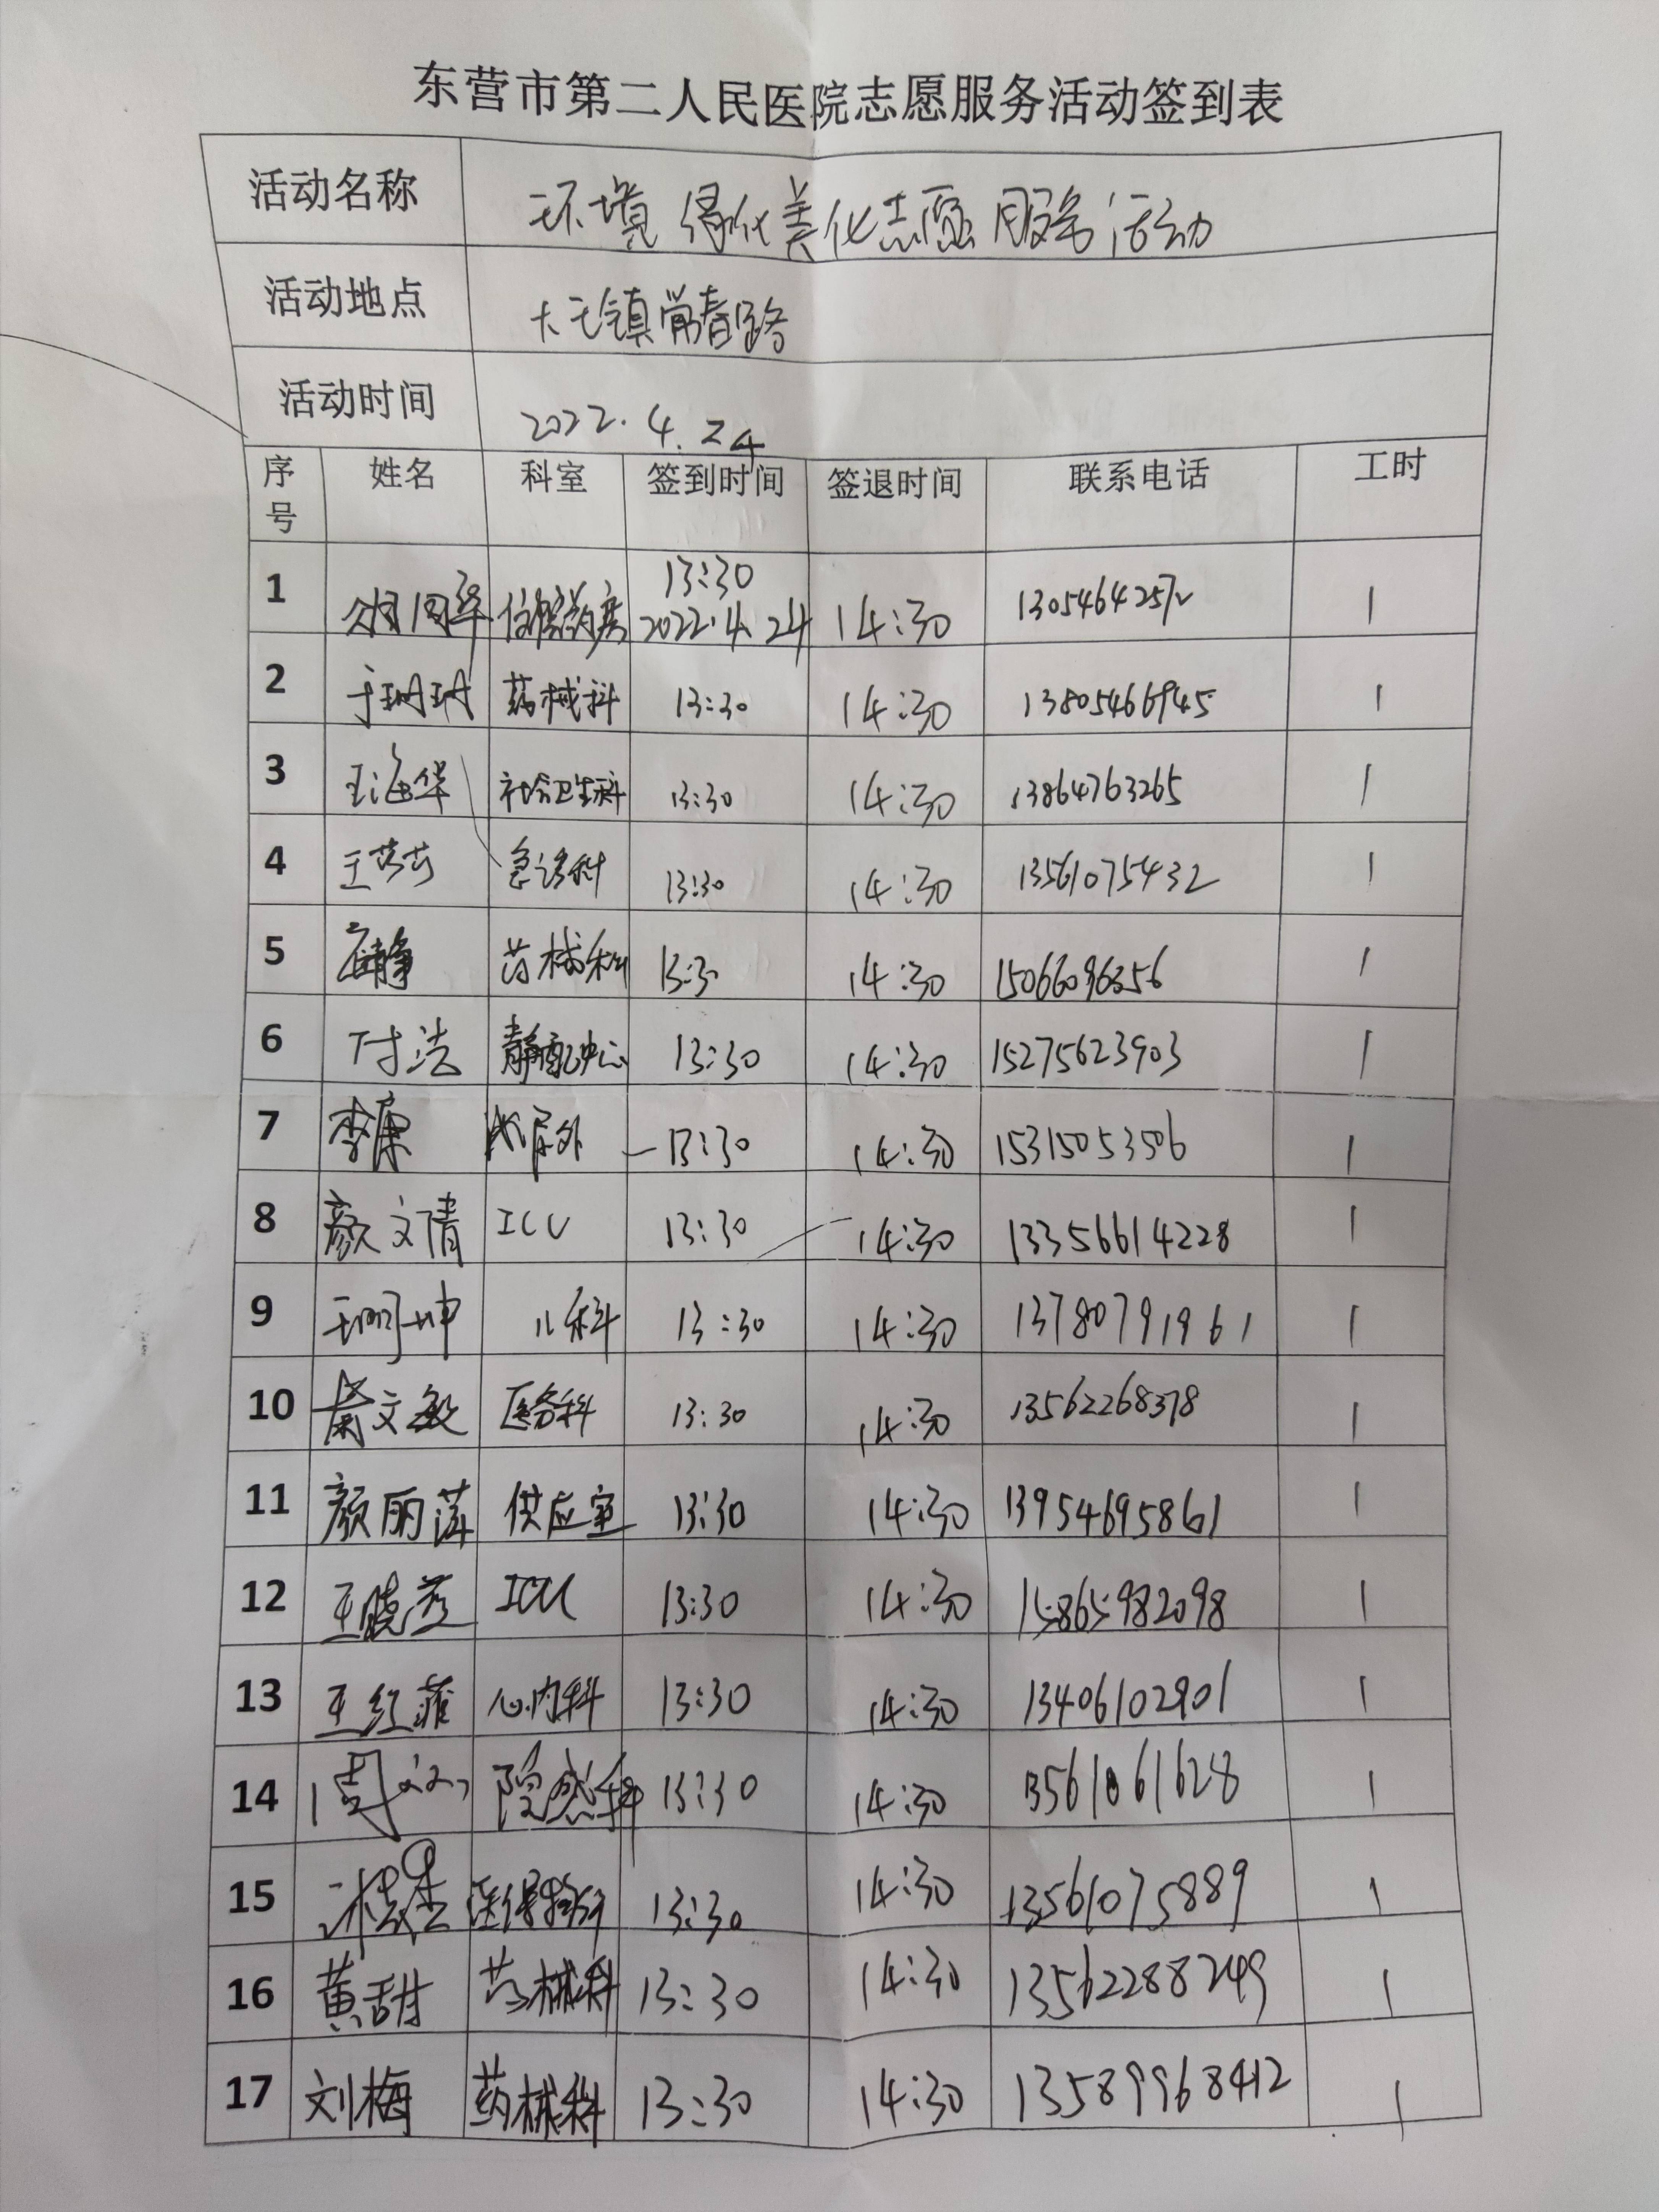 东营市第二人民医院志愿服务活动签到表
活动名称 环境绿化美化志愿服务活动
活动地点 大王镇常春路
活动时间 2022.4.24
序号 姓名 科室 签到时间 签退时间 联系电话 工时
1 13:30 2022.4.24 14:30 13054642572 1
2 于珊珊 药械科 13:30 14:30 13805466945 1
3 王海华 社会卫生科 13:30 14:30 13864763265 1
4 王莎莎 急诊科 13:30 14:30 13561075432 1
5 药械科 13:30 14:30 15066096356 1
6 付浩 静配中心 13:30 14:30 15275623903 1
7 李康 泌尿外 13:30 14:30 15315053506 1
8 颜文倩 ICU 13:30 14:30 13356614228 1
9 儿科 13:30 14:30 13780791961 1
10 文敏 医务科 13:30 14:30 13562268378 1
11 颜丽萍 供应室 13:30 14:30 13954695861 1
12 王晓 ICU 13:30 14:30 15865982098 1
13 王红 心内科 13:30 14:30 13406102901 1
14 周 院感科 13:30 14:30 13561061628 1
15 13:30 14:30 13561075889 1
16 黄甜 药械科 13:30 14:30 13562288249 1
17 刘梅 药械科 13:30 14:30 13589968412 1